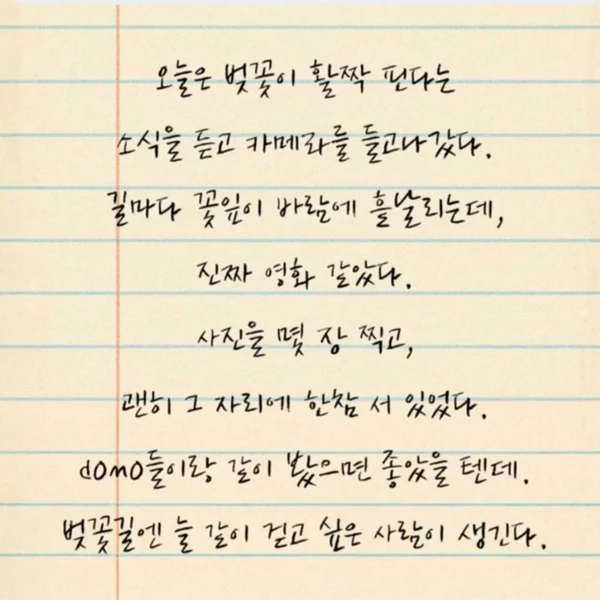 오늘은 벚꽃이 활짝 핀다는
소식을 듣고 카메라를 들고나갔다.
길마다 꽃잎이 바람에 흩날리는데,
진짜 영화 같았다.
사진을 몇 장 찍고,
괜히 그 자리에 한참 서 있었다.
domo들이랑 같이 봤으면 좋았을 텐데.
벚꽃길엔 늘 같이 걷고 싶은 사람이 생긴다.